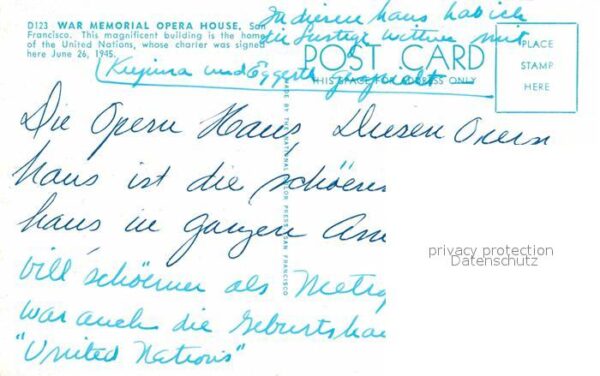 D123 WAR MEMORIAL OPERA HOUSE, San
Francisco. This magnificent building is the home
of the United Nations, whose charter was signed
here June 26, 1945.
In diesem haus hab ich
die lustige wittwe mit
und Eggerth
POST CARD
THIS SPACE FOR ADDRESS ONLY
PLACE
STAMP
HERE
MADE BY THE NATIONAL COLOR PRESS, SAN FRANCISCO
Die Opern Haus, Diesen Opern
haus ist die schöens
haus in ganzen Am
vill schöener als Metro
war auch die Geburtshau
"United Nations"
privacy protection
Datenschutz